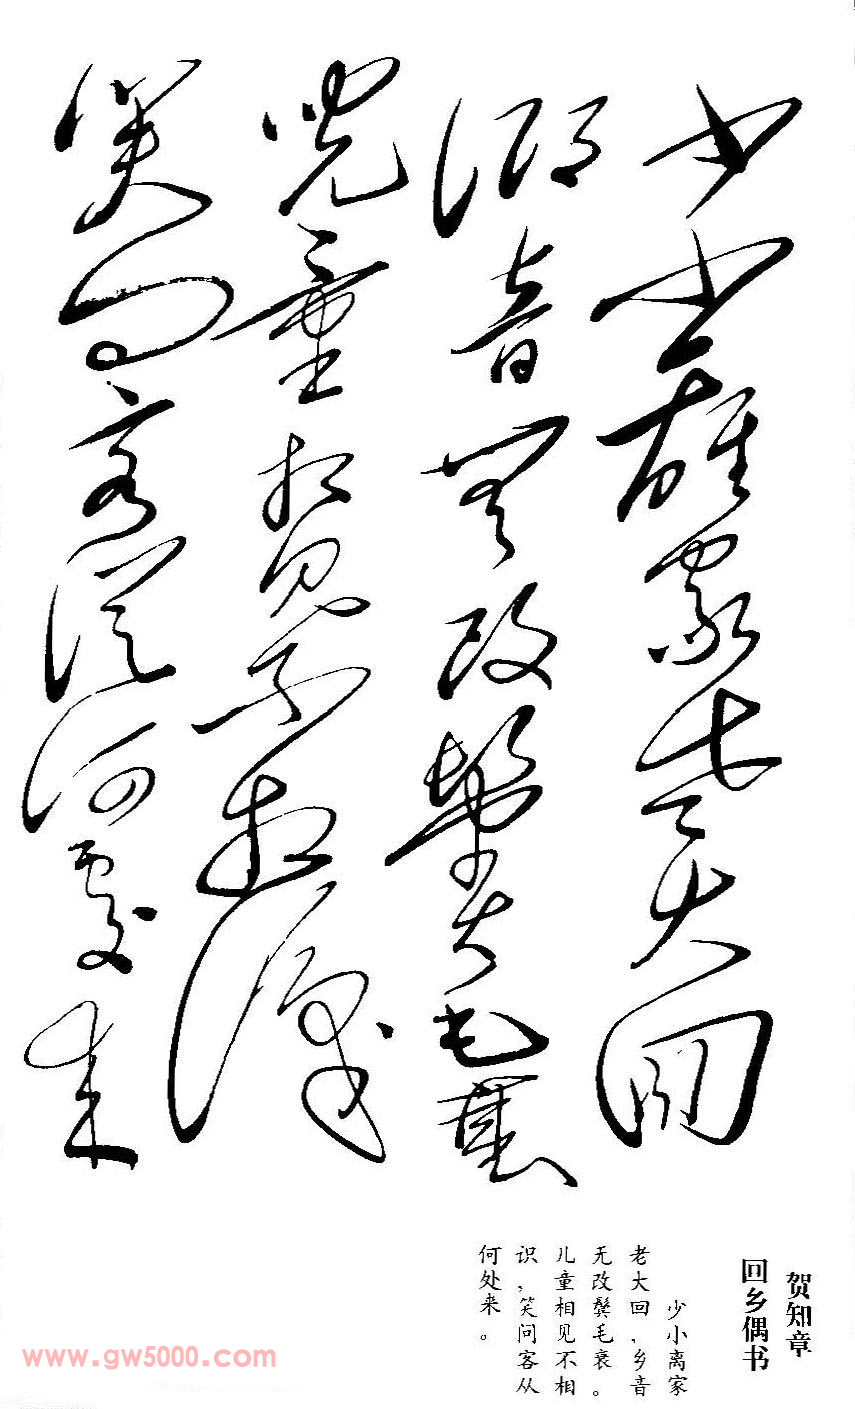 少小離家老大回
鄉音無改鬢毛衰
兒童相見不相識
笑問客從何處來
贺知章
回乡偶书
少小离家
老大回，乡音
无改鬓毛衰。
儿童相见不相
识，笑问客从
何处来。
www.gw5000.com